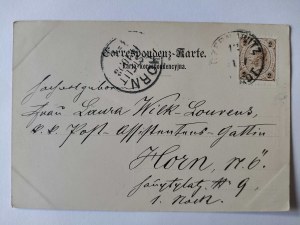 Correspondenz-Karte.
Karta korespondencyjna.
HORN
Hochwolgeboren
Frau Laura Wilk-Lourens,
k. k. Post-Assistentens-Gattin
Horn, N.Ö.
Hauptplatz Nr 9
1. Stock.